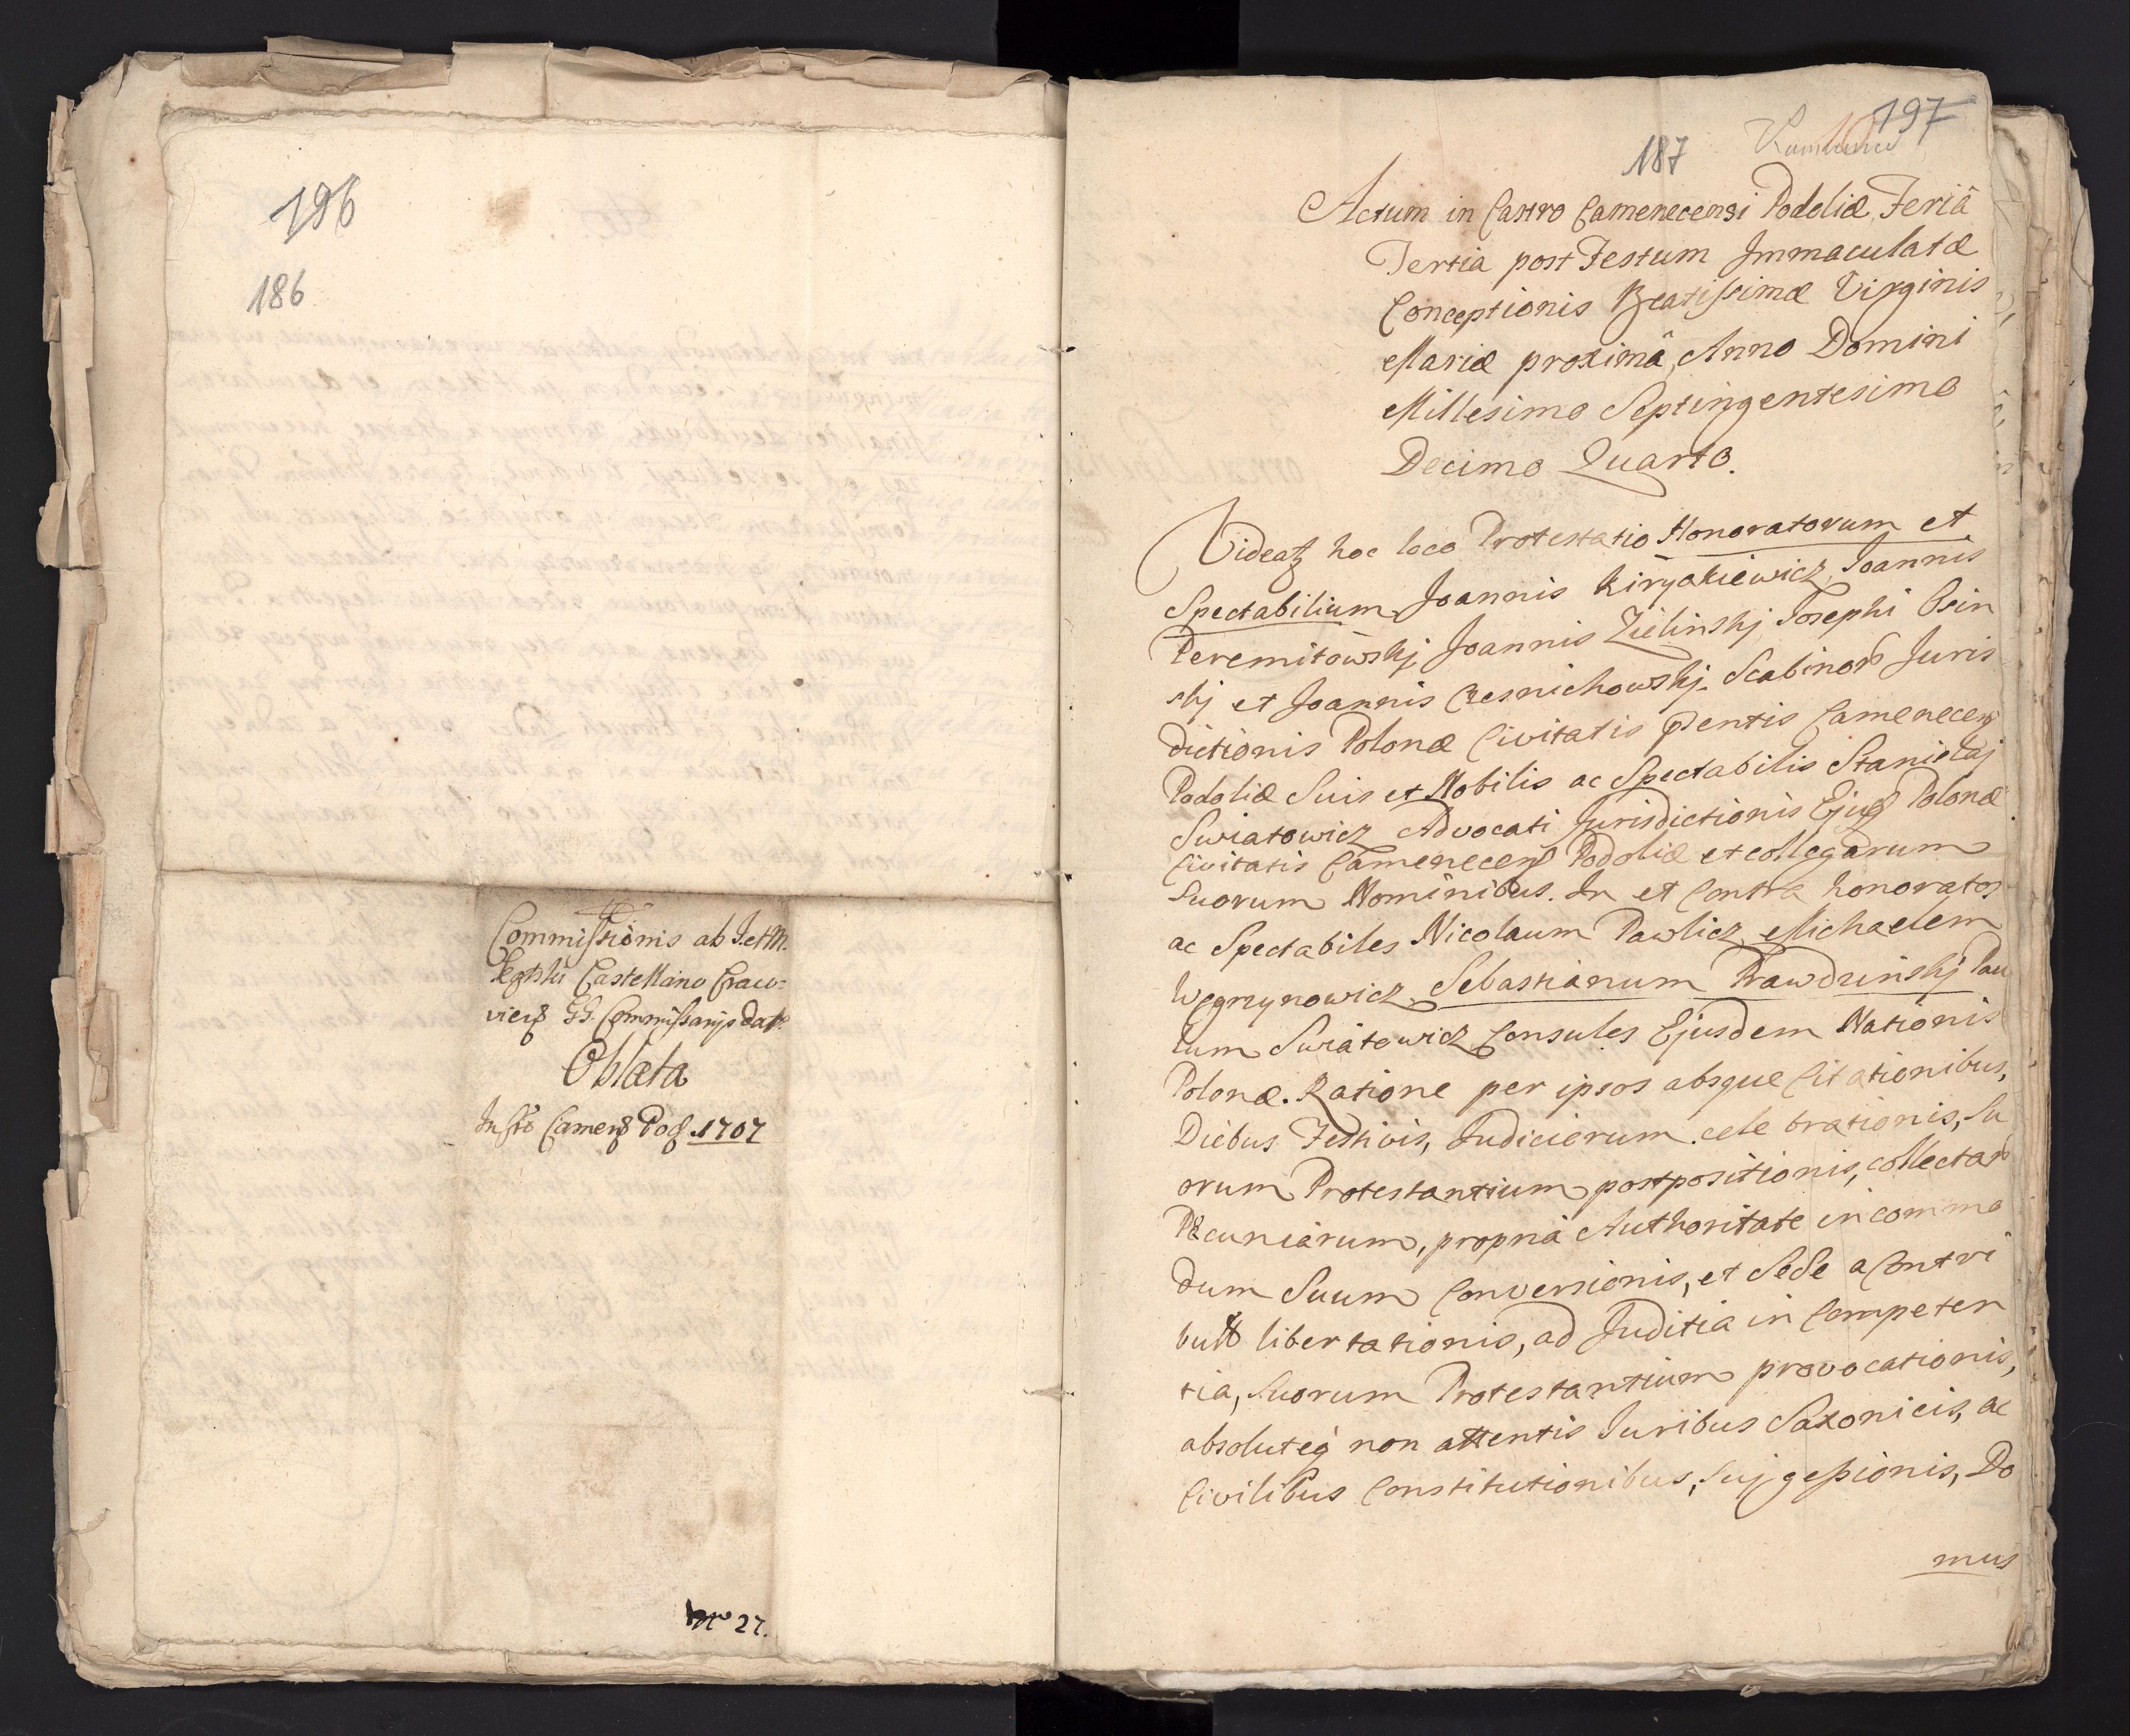 196
186
Commissionis ab J. et M.
Castellano Craco-
viens GG. Commissarijs dat
Oblata
Camens Pod. 1707
No 27.
197
187
Actum in Castro Camenecensi Podoliæ, Feriâ
Tertia post Festum Jmmaculatæ
Conceptionis Beatissimæ Virginis
Mariæ proximâ, Anno Domini
Millesimo Septingentesimo
Decimo Quarto.
Videatz hoc loco Protestatio Honoratorum et
Spectabilium Joannis Kiryakiewicz, Joannis
Peremitowskj Joannis Zielinskj, Josephi Osin
skj et Joannis Czesnichowskj Scabinorum Juris
dictionis Polonæ Civitatis pntis Camenecens
Podoliæ Suis et Nobilis ac Spectabilis Stanislaj
Swiatowicz Advocati Jurisdictionis Ejusd Polonæ
Civitatis Camenecens Podoliæ et collegarum
Suorum Nominibus. In et Contra honoratos
ac Spectabiles Nicolaum Pawlicz, Michaelem
Wegrzynowicz, Sebastianum Prawdzinskj Pau
lum Swiatowicz Consules Ejusdem Nationis
Polonæ. Ratione per ipsos absque Citationibus,
Diebus Festivis, Judiciorum celebrationis, Su
orum Protestantium postpositionis, collectarum
Pecuniarum, propria Authoritate in commo
dum Suum Conversionis, et Sese a Contri
butt libertationis, ad Juditia in Competen
tia, Suorum Protestantium provocationis,
absoluteq non attentis Juribus Saxonicis, ac
Civilibus Constitutionibus, Suj gessionis, Do
mus